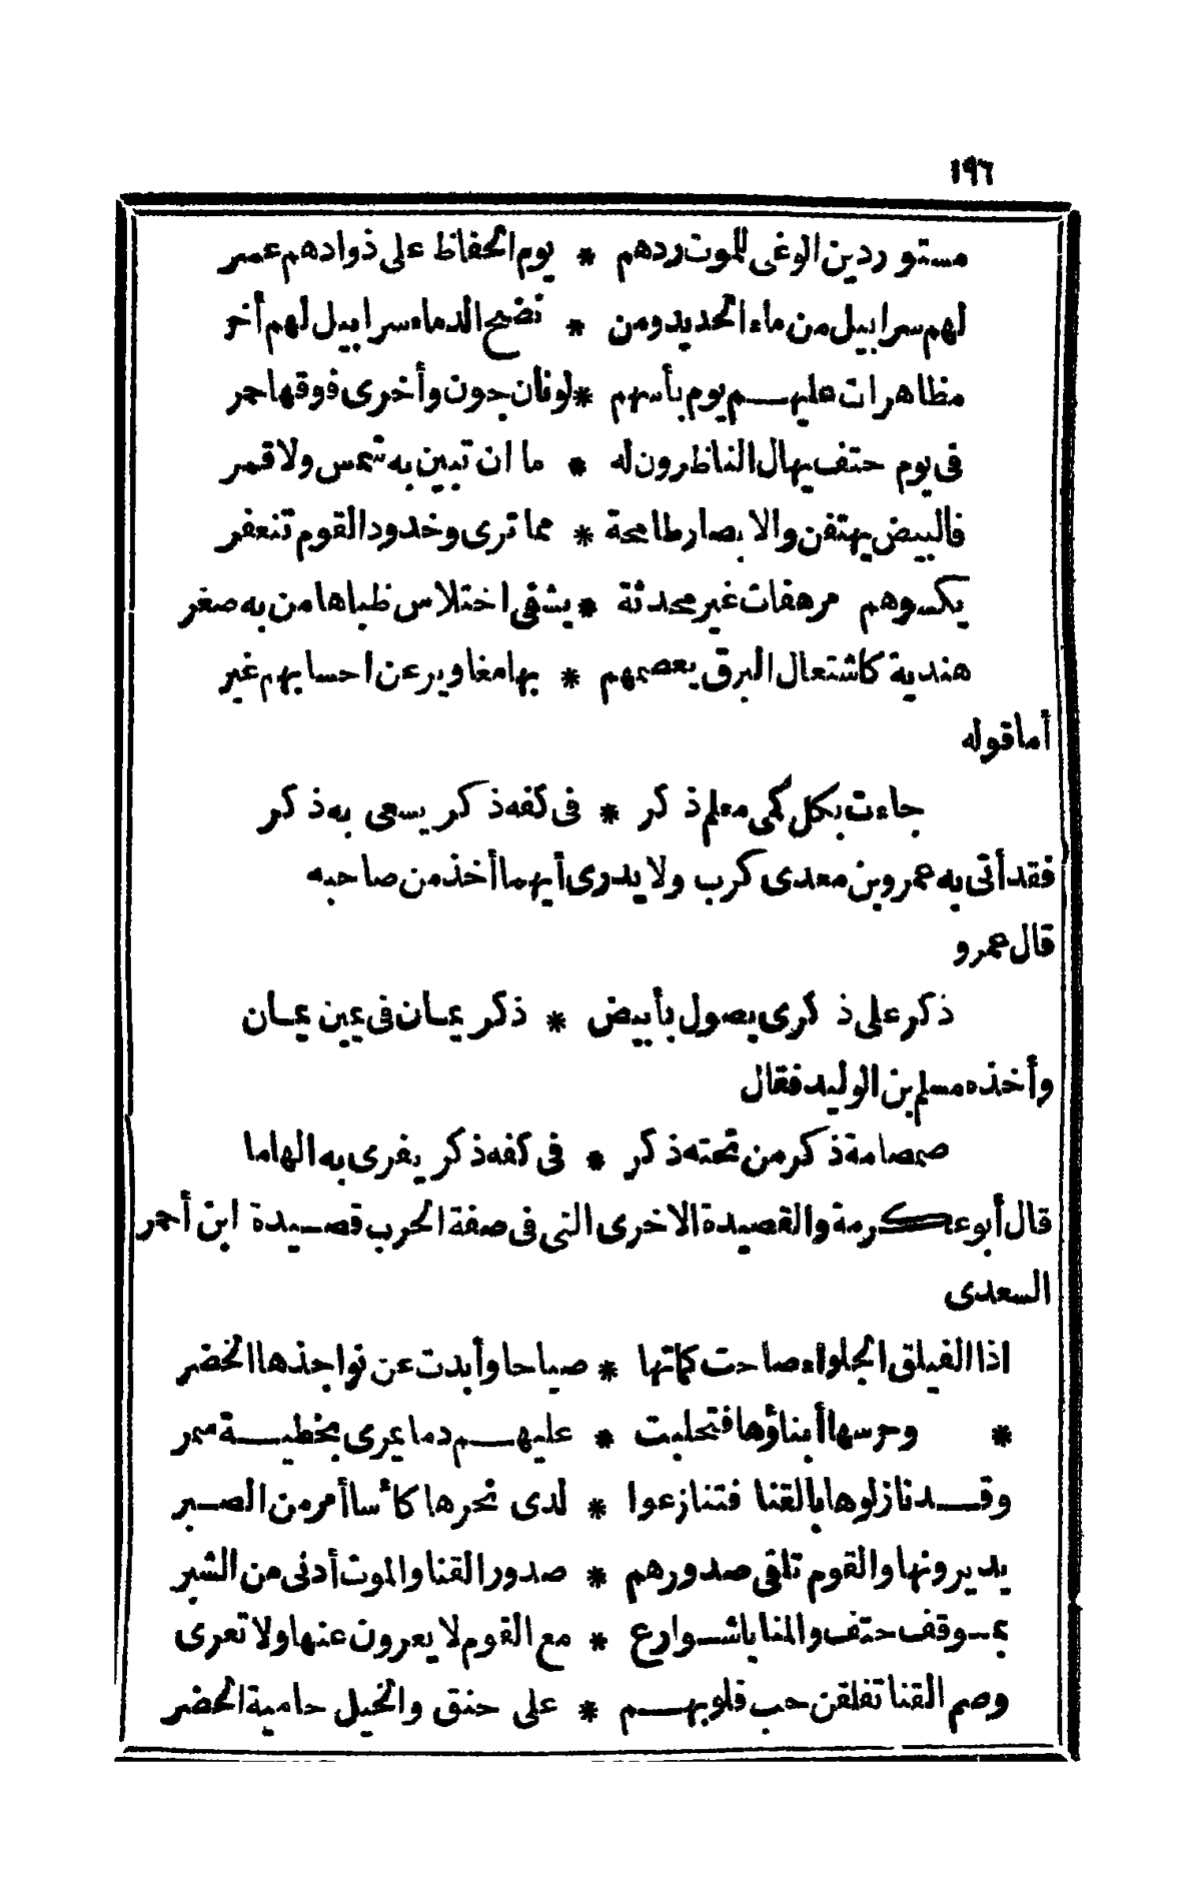 ١٩٦
مستوردين الوغى للموت ردهم * يوم الحفاظ على ذوادهم عسر
لهم سرابيل من ماء الحديد ومن * نضح الدماء سرابيل لهم أخر
مظاهرات عليهم يوم بأسهم * لونان جون وأخرى فوقها حمر
فى يوم حتف يهال الناظرون له * ما ان تبين به شمس ولا قمر
فالبيض يهتفن والابصار طامحة * مما ترى وخدود القوم تنعفر
يكسوهم مرهفات غير محدثة * يشفى اختلاس ظباها من به صغر
هندية كاشتعال البرق يعصمهم * بها مغاوير عن احسابهم غير
أما قوله
جاءت بكل كمى معلم ذكر * فى كفه ذكر يسعى به ذكر
فقد أتى به عمرو بن معدى كرب ولا يدرى أيهما أخذ من صاحبه
قال عمرو
ذكر على ذكرى يصول بأبيض * ذكر يمان فى يمين يمان
وأخذه مسلم بن الوليد فقال
صمصامة ذكر من تحته ذكر * فى كفه ذكر يفرى به الهاما
قال أبو عكرمة والقصيدة الاخرى التى فى صفة الحرب قصيدة ابن أحمر
السعدى
اذا الفيلق الجلواء صاحت كماتها * صياحا وأبدت عن نواجذها الخضر
* وحرسها أبناؤها فتحلبت * عليهم دما يمرى بخطية سمر
وقد نازلوها بالقنا فتنازعوا * لدى نحرها كأسا أمر من الصبر
يديرونها والقوم تلقى صدورهم * صدور القنا والموت أدنى من الشبر
بموقف حتف والمنايا شوارع * مع القوم لا يعرون عنها ولا تعرى
وصم القنا تفلقن حب قلوبهم * على حنق والخيل حامية الحضر